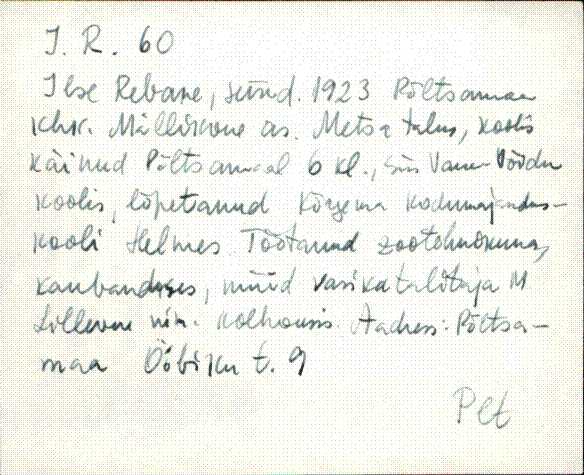 I. R. 60
Ilse Rebane, sünd. 1923 Põltsamaa
khk. Mällikvere as. Metsa talus, koolis
käinud Põltsamaal 6 kl., siis Vana-Võidu
koolis, lõpetanud Kõrgema Kodumajandus-
kooli Helmes Töötanud zootehnikuna,
kaubanduses, nüüd vasikatalitaja M
Lillevere nim. kolhoosis. Aadress: Põltsa-
maa Ööbiku t. 9
Pet